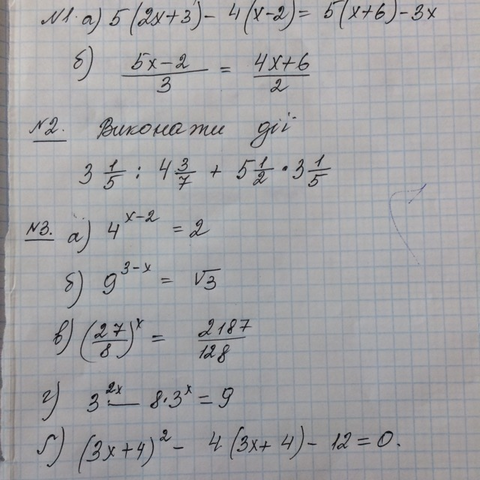 №1. а) 5(2x+3) - 4(x-2) = 5(x+6) - 3x
б) \frac{5x-2}{3} = \frac{4x+6}{2}
№2. Виконати дії
3\frac{1}{5} : 4\frac{3}{7} + 5\frac{1}{2} \cdot 3\frac{1}{5}
№3. а) 4^{x-2} = 2
б) 9^{3-x} = \sqrt{3}
в) (\frac{27}{8})^{x} = \frac{2187}{128}
г) 3^{2x} - 8 \cdot 3^{x} = 9
ґ) (3x+4)^{2} - 4(3x+4) - 12 = 0.